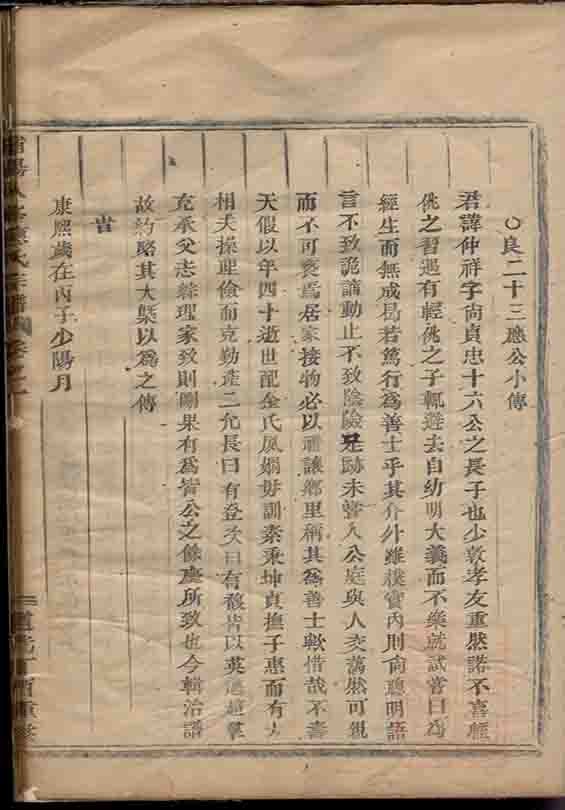 ○良二十三應公小傳
君諱仲祥字尚貞忠十六公之長子也少敦孝友重然諾不喜輕
佻之習遇有輕佻之子輒避去自幼明大義而不樂就試嘗曰為
經生而無成曷若篤行為善士乎其介外雖樸實內則尚聰明語
言不致詭譎動止不致陰險足跡未嘗入公庭與人交藹然可親
而不可褻焉居家接物必以禮讓鄉里稱其為善士歟惜哉不壽
天假以年四十逝世配金氏夙嫻姆訓素秉坤貞撫子惠而有方
相夫操理儉而克勤產二允長曰有登次曰有馥皆以英邁超羣
克承父志綜理家政則剛果有為皆公之餘慶所致也今輯治譜
故約略其大槩以為之傳
旹
康熙歲在丙子少陽月
氏宗譜 卷之一
道光丁酉重修